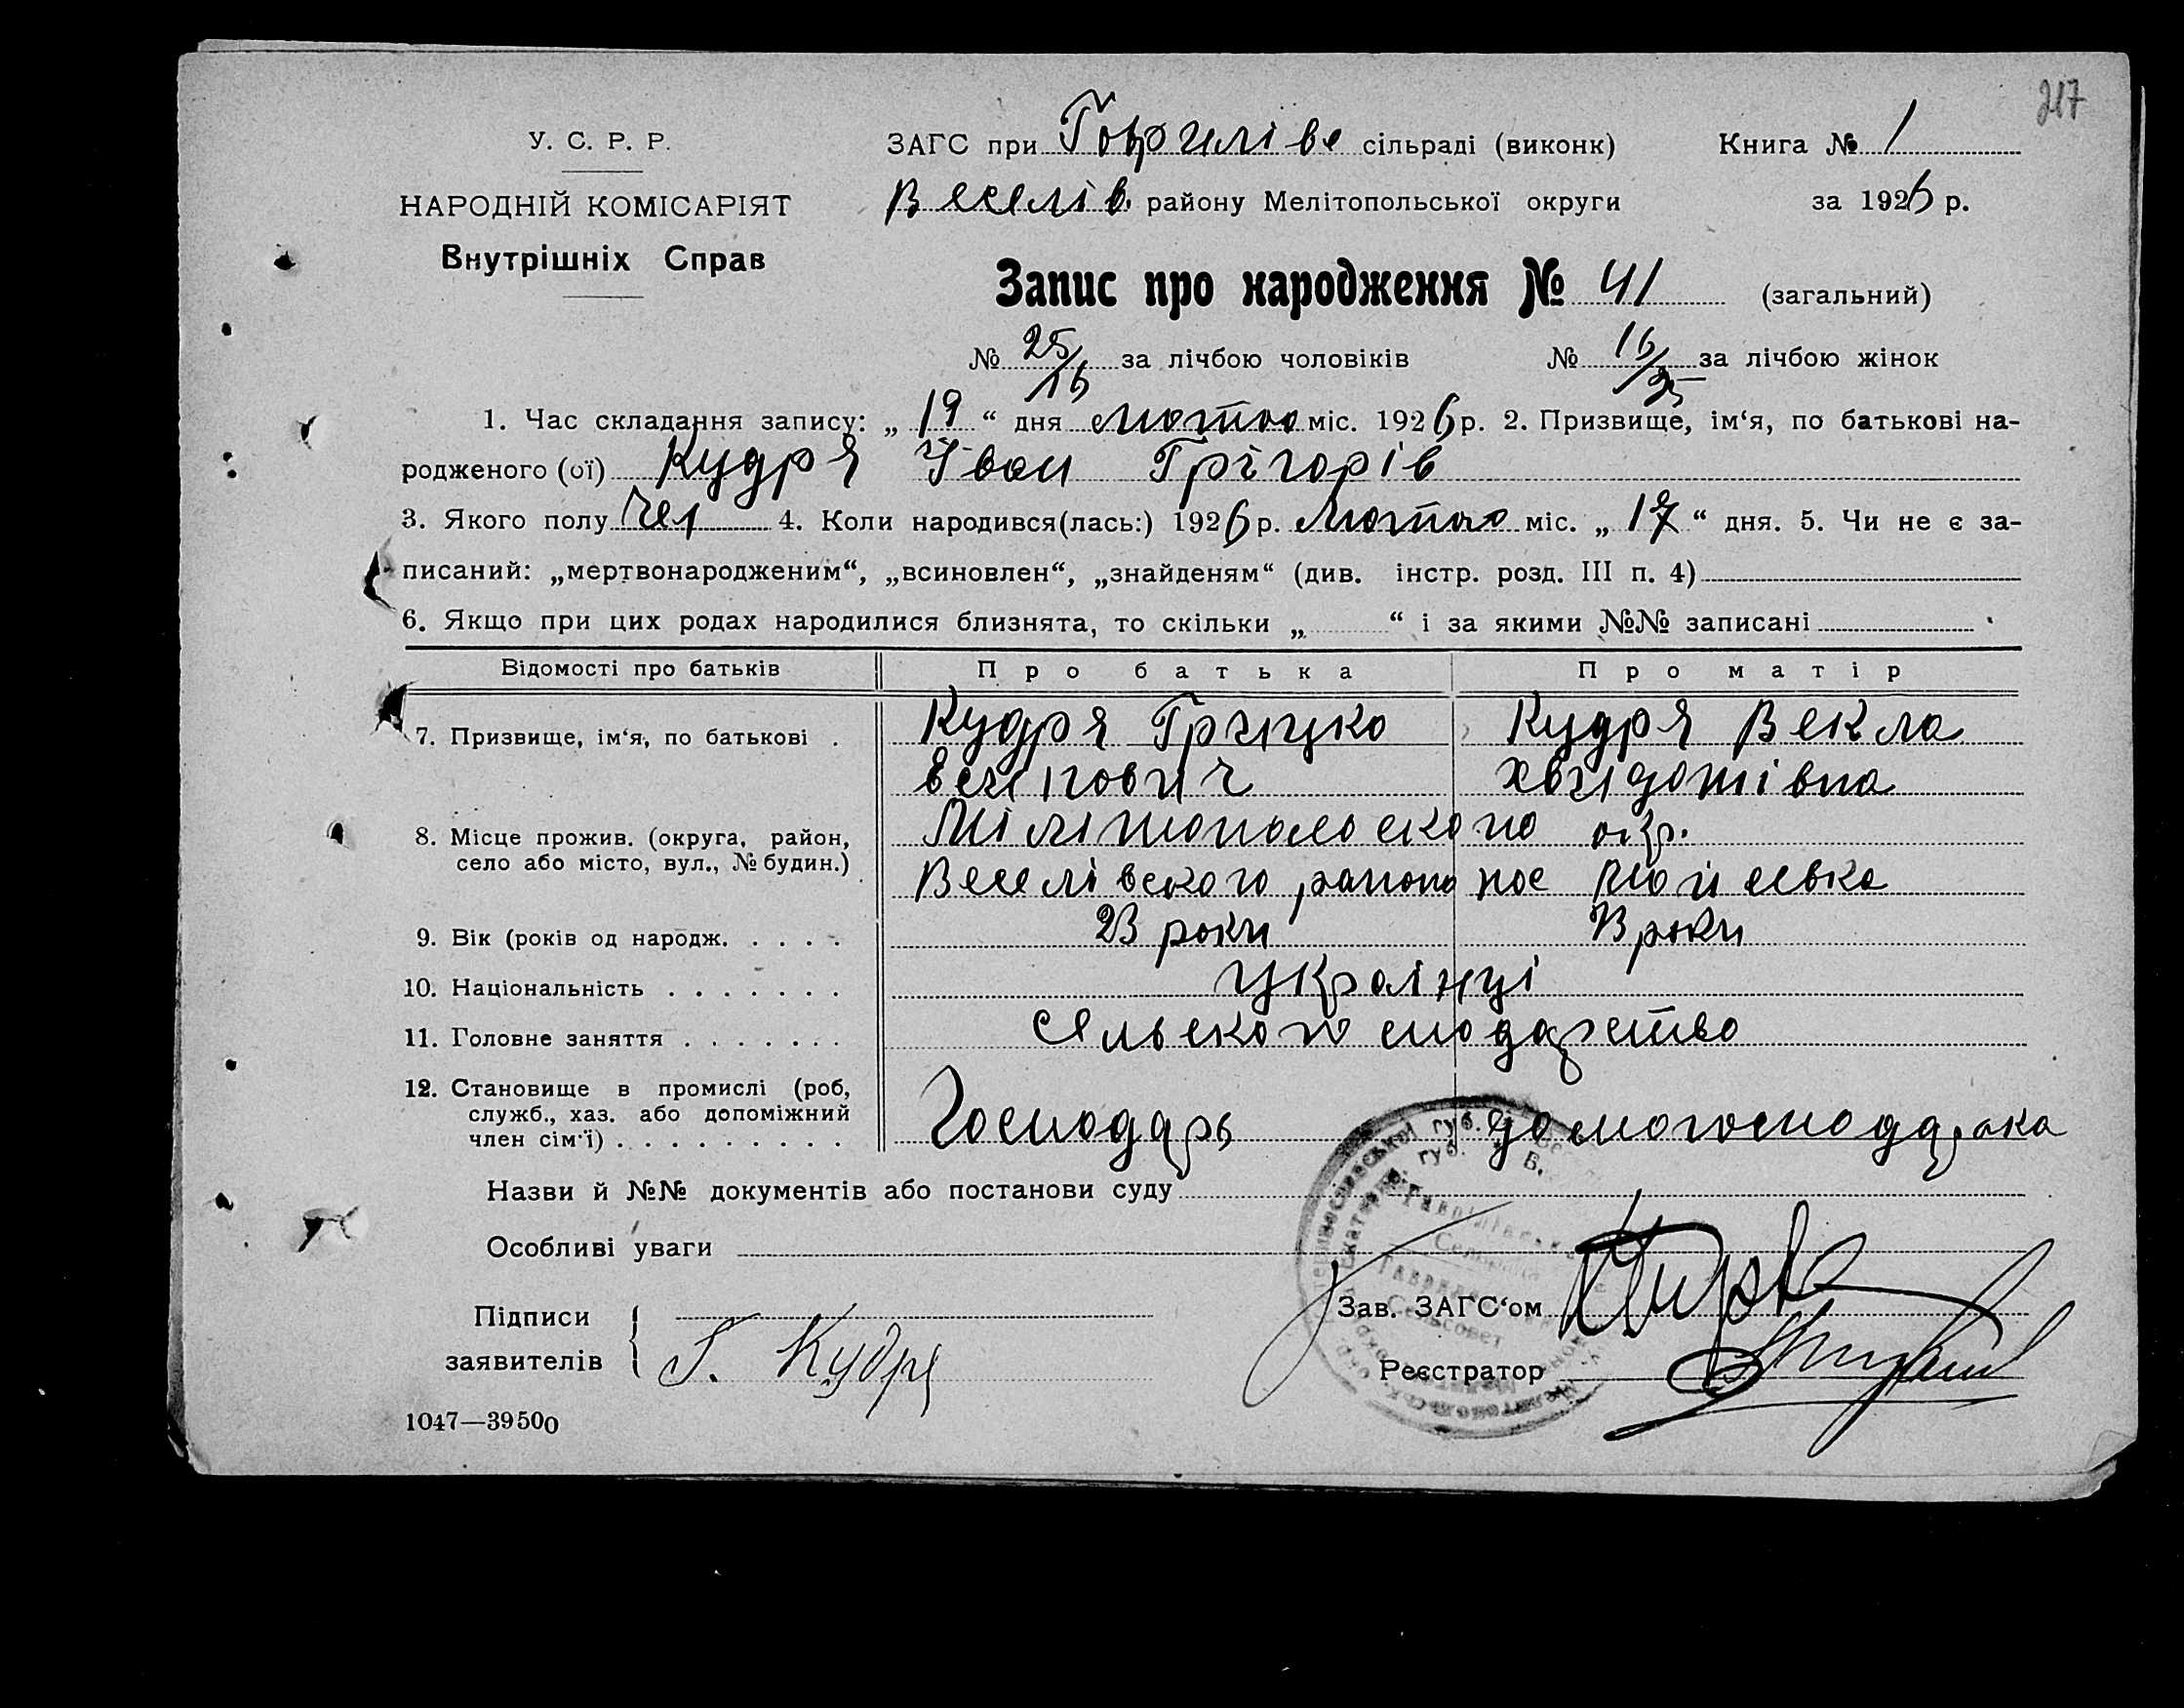 217
У. С. Р. Р.
НАРОДНІЙ КОМІСАРІЯТ
Внутрішніх Справ
ЗАГС при Гаврилівс сільраді (виконк) Книга № 1
Веселів. району Мелітопольської округи за 1926 р.
Запис про народження № 41 (загальний)
№ 25/16 за лічбою чоловіків № 16/25 за лічбою жінок
1. Час складання запису: „ 19 “ дня лютого міс. 1926 р. 2. Призвище, ім‘я, по батькові на-
родженого (ої) Кудря Іван Грігорів
3. Якого полу Чол 4. Коли народився(лась:) 1926 р. лютого міс. „ 17 “ дня. 5. Чи не є за-
писаний: „мертвонародженим“, „всиновлен“, „знайденям“ (див. інстр. розд. III п. 4)
6. Якщо при цих родах народилися близнята, то скільки „ “ і за якими №№ записані
Відомості про батьків Про батька Про матір
7. Призвище, ім‘я, по батькові . Кудря Грицко Кудря Векла
хвидотівна
8. Місце прожив. (округа, район, Мілітопольського окр.
село або місто, вул., № будин.) Веселівского району пос
9. Вік (років од народж. . . . . 23 роки 23 роки
10. Національність . . . . . . . українці
11. Головне заняття . . . . . . . Сельскогосподарство
12. Становище в промислі (роб, Господарь домогосподарка
служб., хаз. або допоміжний
член сім‘ї) . . . . . . . . .
Назви й №№ документів або постанови суду
Особливі уваги
Підписи
заявителів Г. Кудря
Зав. ЗАГС‘ом
Реєстратор
1047—39500